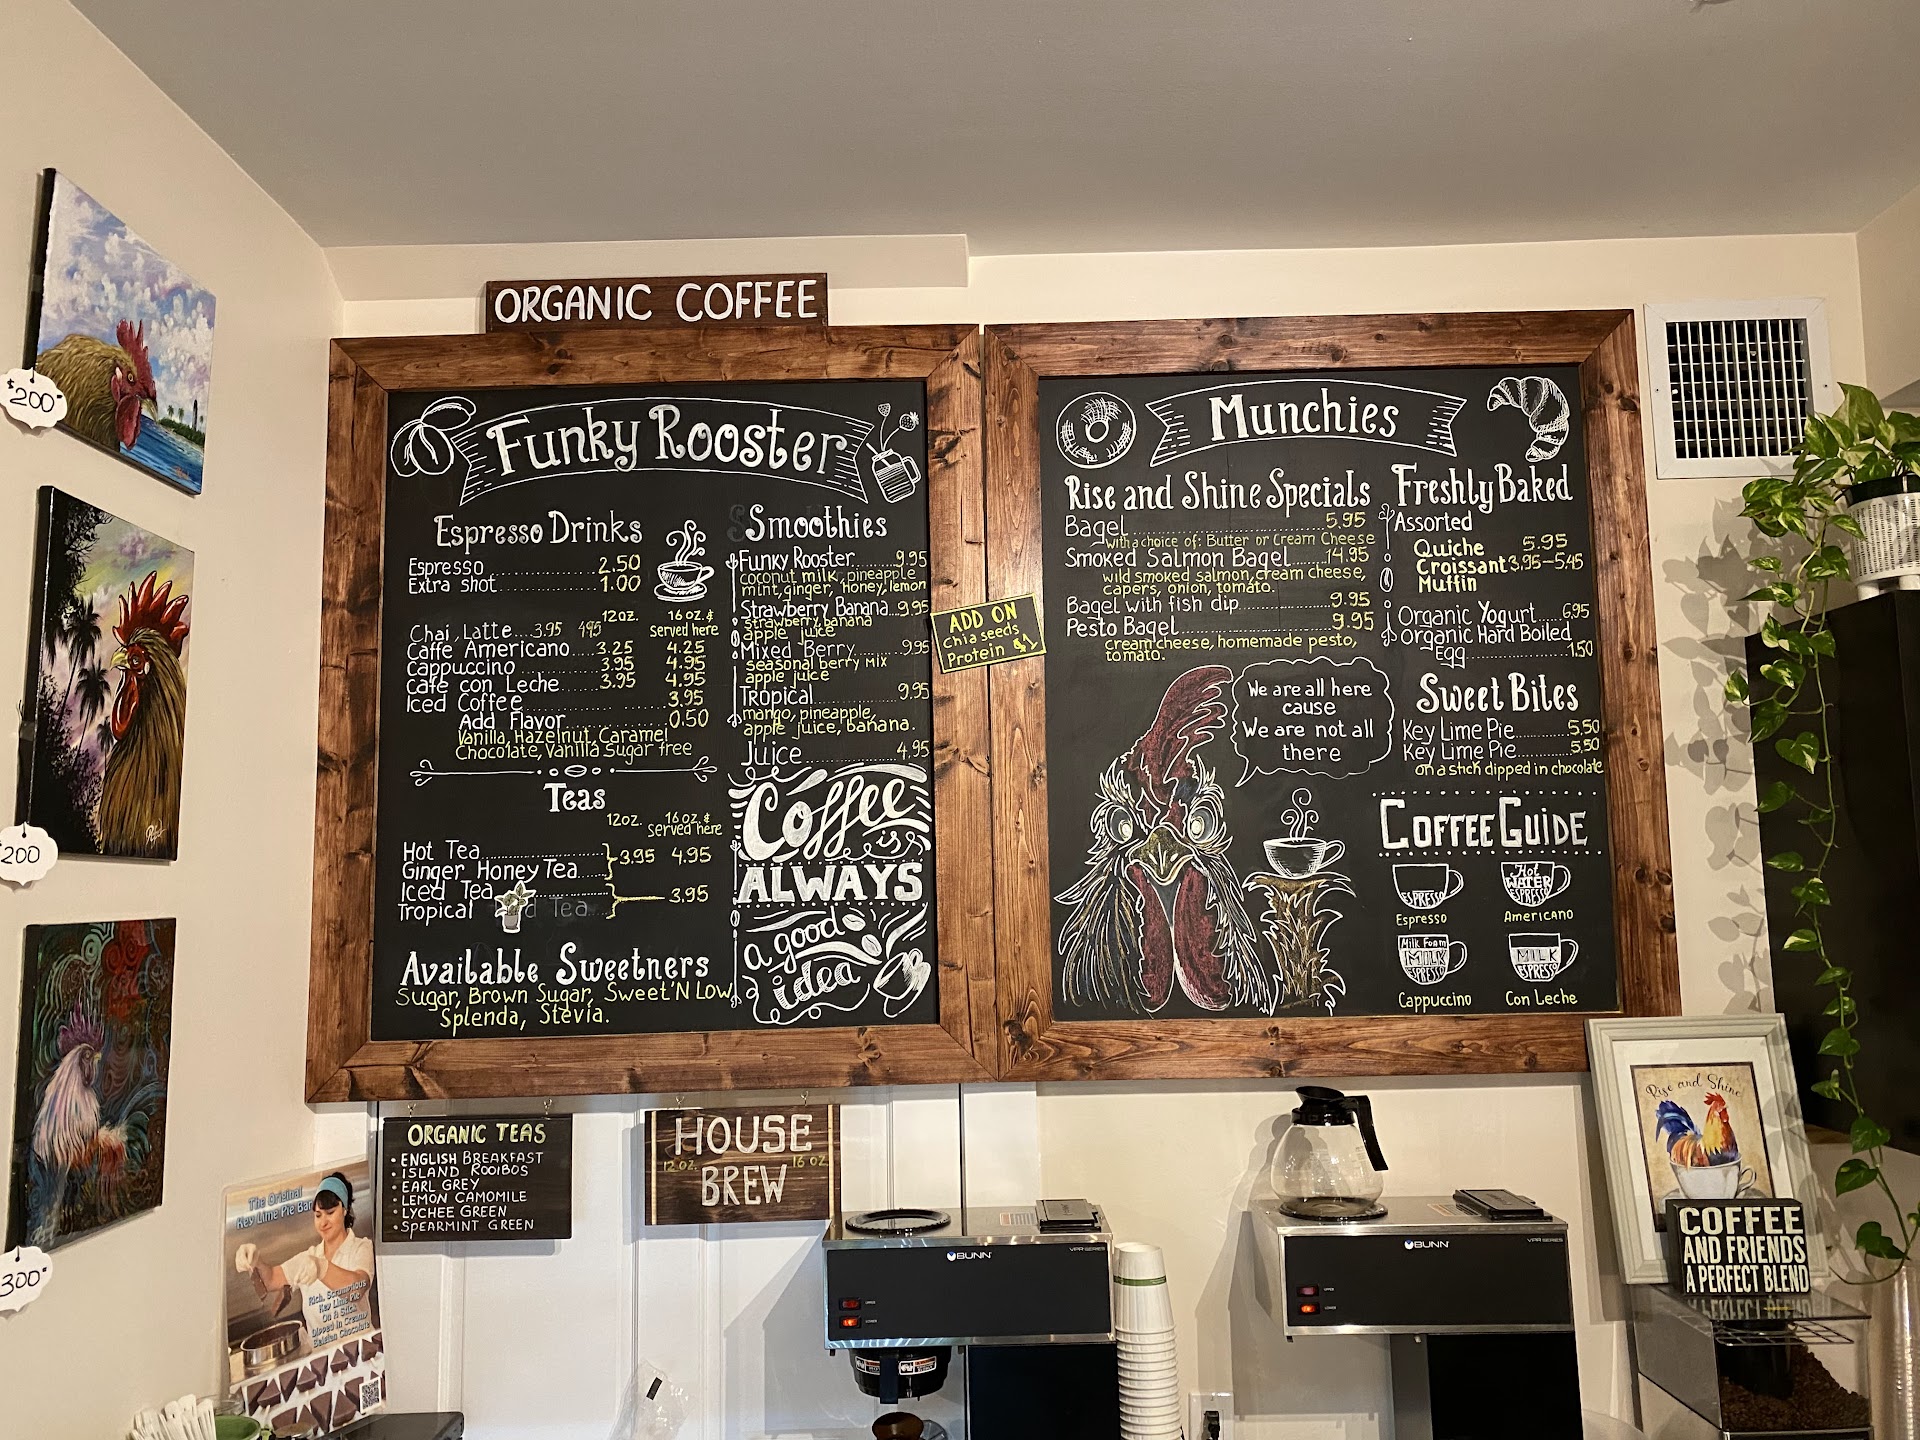 ORGANIC COFFEE
Funky Rooster
Espresso Drinks
Espresso 2.50
Extra shot 1.00
12oz. 16 oz. &
Served here
Chai, Latte 3.95 4.95
Caffe Americano 3.25 4.25
Cappuccino 3.95 4.95
Café con Leche 3.95 4.95
Iced Coffee 3.95
Add Flavor 0.50
Vanilla, Hazelnut, Caramel
Chocolate, Vanilla Sugar free
Teas
12oz. 16 oz. &
Served here
Hot Tea
Ginger Honey Tea 3.95 4.95
Iced Tea
Tropical Iced Tea 3.95
Available Sweetners
Sugar, Brown Sugar, Sweet'N Low,
Splenda, Stevia.
Smoothies
Funky Rooster 9.95
coconut milk, pineapple
mint, ginger, honey, lemon
Strawberry Banana 9.95
strawberry, banana
apple juice
Mixed Berry 9.95
seasonal berry mix
apple juice
Tropical 9.95
mango, pineapple,
apple juice, banana.
Juice 4.95
Coffee
is
ALWAYS
a good
idea
ADD ON
Chia seeds
Protein $1
Munchies
Rise and Shine Specials
Bagel 5.95
with a choice of: Butter or Cream Cheese
Smoked Salmon Bagel 14.95
wild smoked salmon, cream cheese,
capers, onion, tomato.
Bagel with fish dip 9.95
Pesto Bagel 9.95
cream cheese, homemade pesto,
tomato.
We are all here
cause
We are not all
there
Freshly Baked
Assorted
Quiche 5.95
Croissant 3.95-5.45
Muffin
Organic Yogurt 6.95
Organic Hard Boiled
Egg 1.50
Sweet Bites
Key Lime Pie 5.50
Key Lime Pie 5.50
on a stick dipped in chocolate
COFFEE GUIDE
ESPRESSO
Espresso
Hot
WATER
ESPRESSO
Americano
Milk Foam
MILK
ESPRESSO
Cappuccino
MILK
ESPRESSO
Con Leche
$200
200
300
ORGANIC TEAS
• ENGLISH BREAKFAST
• ISLAND ROOIBOS
• EARL GREY
• LEMON CAMOMILE
• LYCHEE GREEN
• SPEARMINT GREEN
HOUSE
12 OZ. 16 OZ
BREW
The Original
Key Lime Pie Bar
Rich, Scrumptious
Key Lime Pie
On A Stick
Dipped in Creamy
Belgian Chocolate
BUNN
VPR SERIES
BUNN
VPR SERIES
Rise and Shine
COFFEE
AND FRIENDS
A PERFECT BLEND